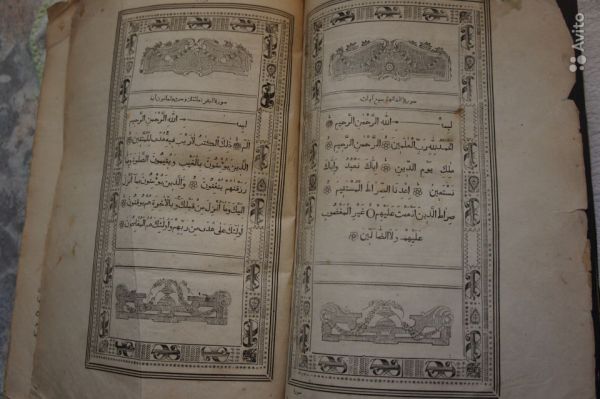 سورة الفاتحة سبع آيات
بسم الله الرحمن الرحيم
الحمد لله رب العلمين الرحمن الرحيم
ملك يوم الدين اياك نعبد واياك
نستعين اهدنا الصراط المستقيم
صراط الذين انعمت عليهم غير المغضوب
عليهم ولا الضالين
سورة البقرة مائتان وست وثمانون آية
بسم الله الرحمن الرحيم
الم ذلك الكتب لا ريب فيه هدى للمتقين
الذين يؤمنون بالغيب ويقيمون الصلوة ومما
رزقنهم ينفقون والذين يؤمنون بما انزل
اليك وما انزل من قبلك وبالآخرة هم يوقنون
اولئك على هدى من ربهم واولئك هم المفلحون
Avito